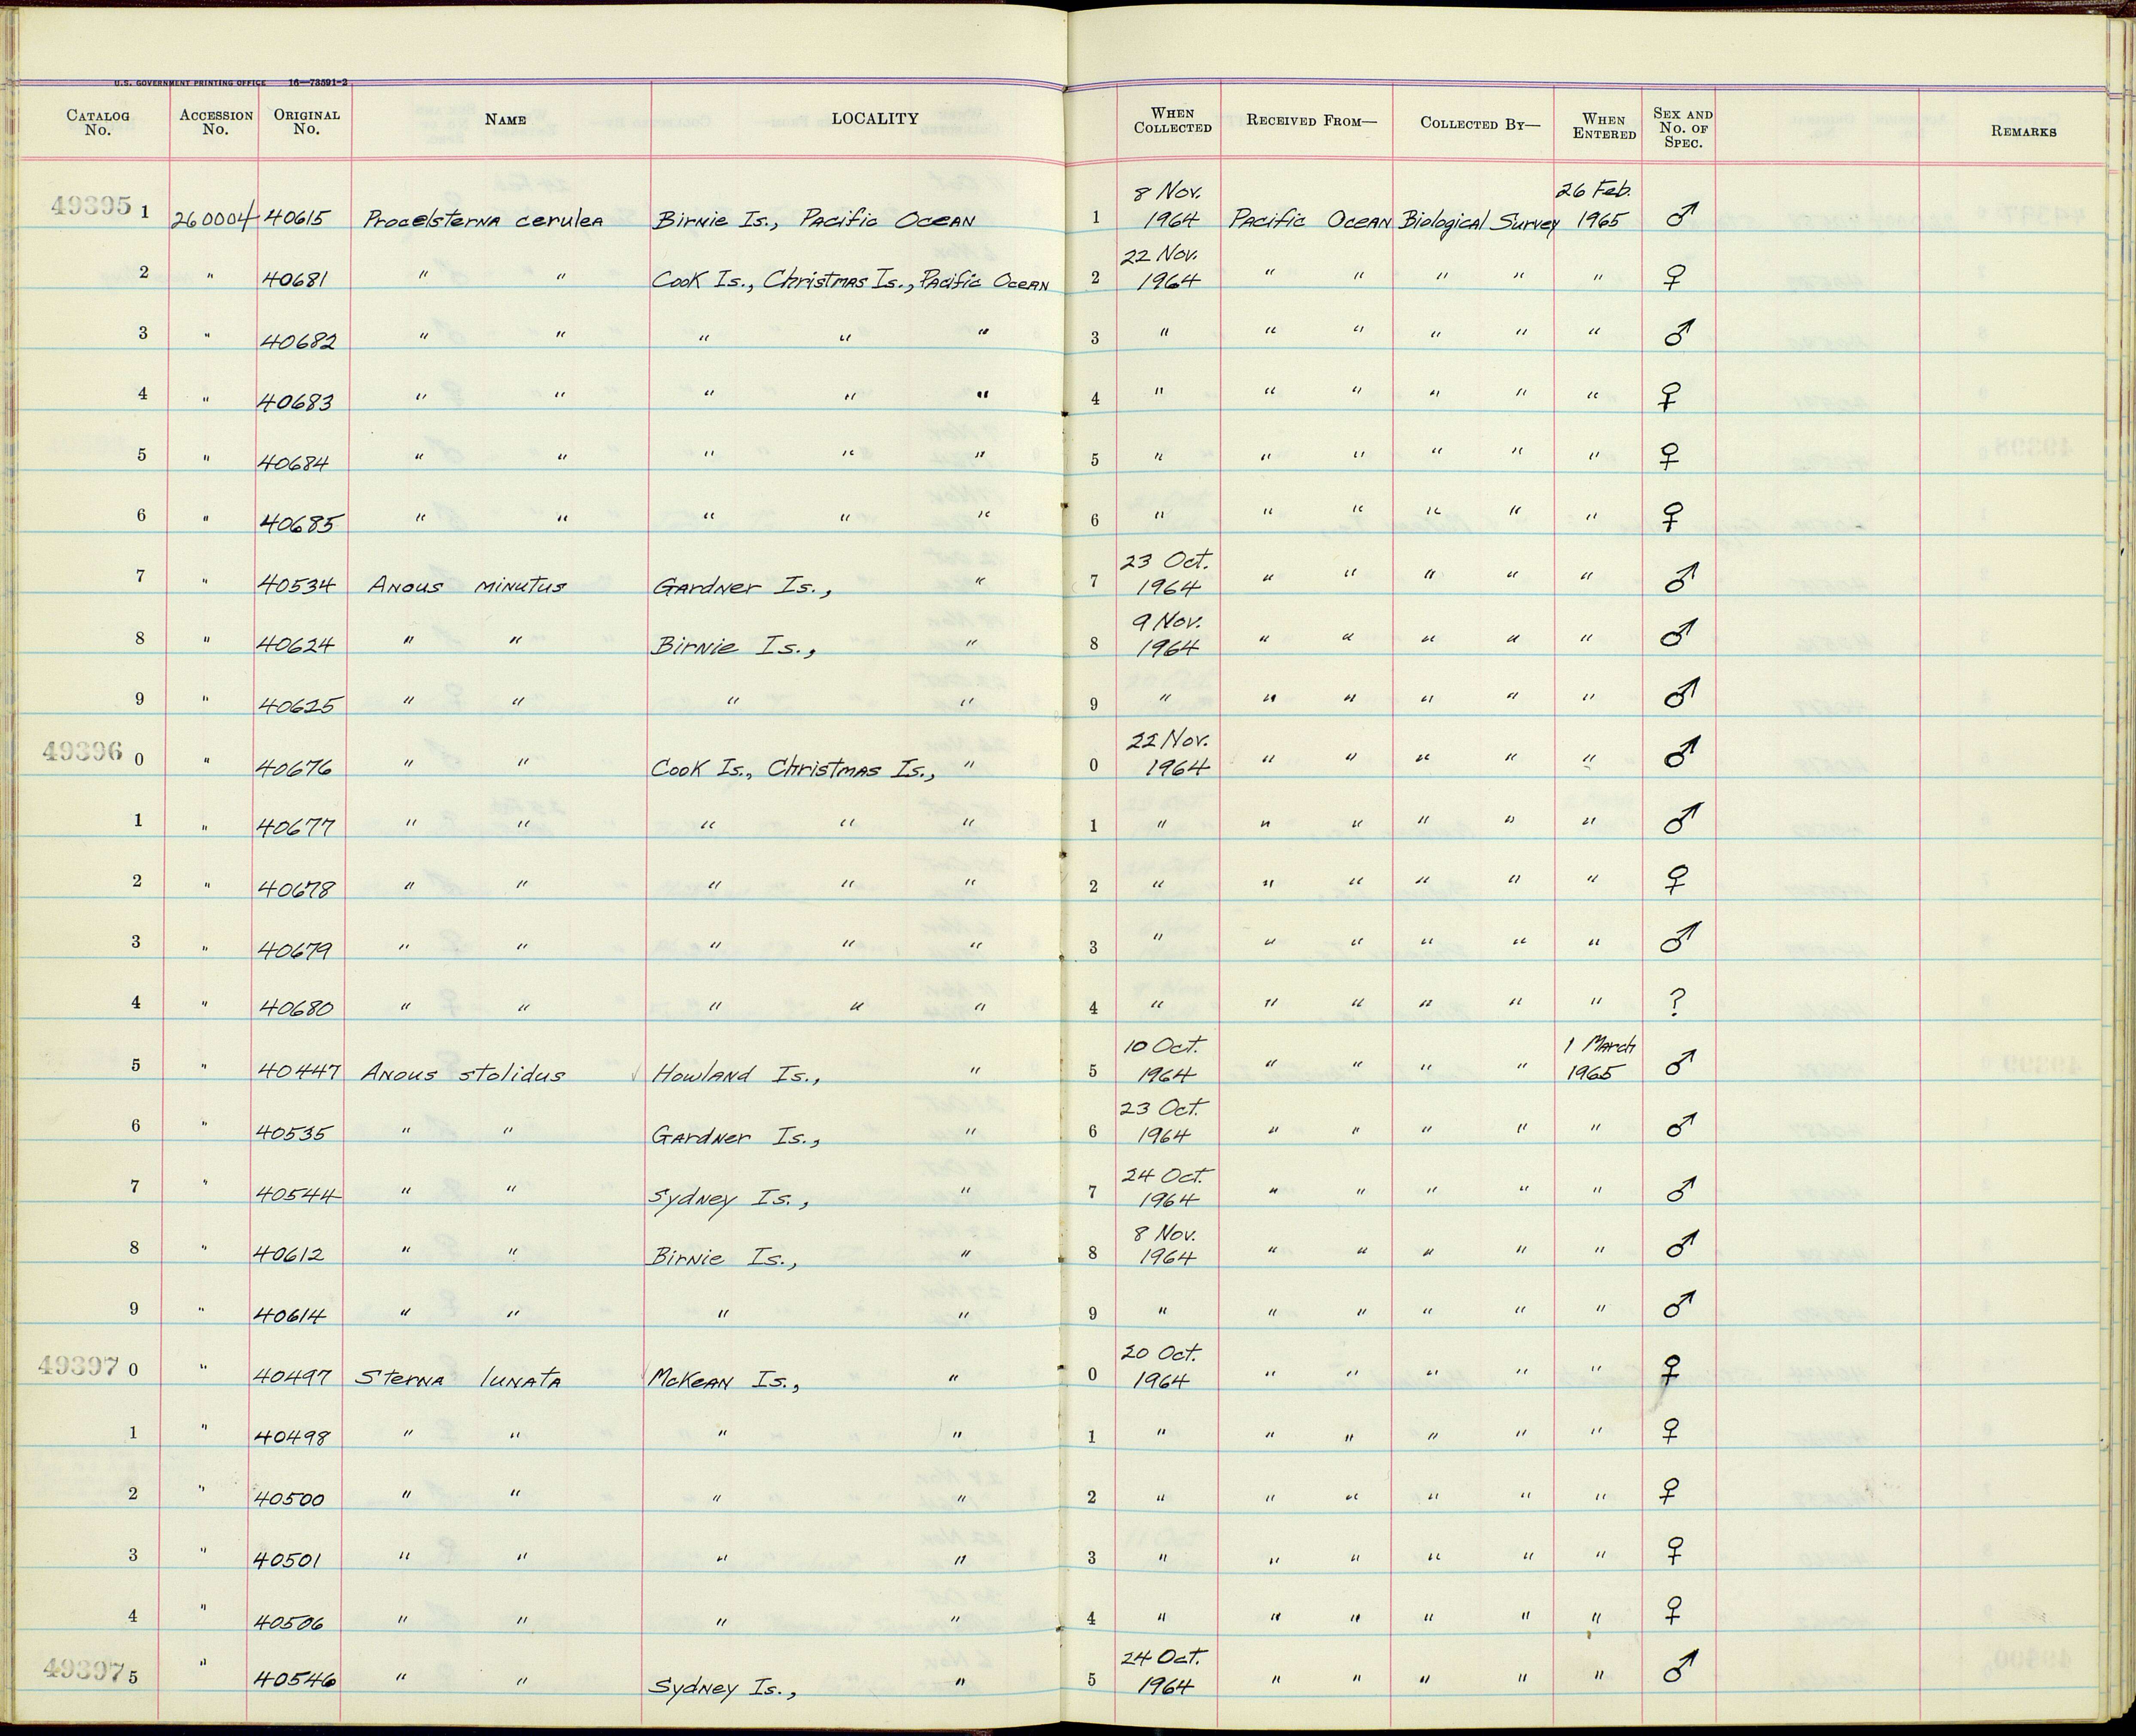 U.S. GOVERNMENT PRINTING OFFICE 16—73591-2
CATALOG No. ACCESSION No. ORIGINAL No. NAME LOCALITY WHEN COLLECTED RECEIVED FROM— COLLECTED BY— WHEN ENTERED SEX AND No. OF SPEC. REMARKS
49395 1 260004 40615 Procelsterna cerulea Birnie Is., Pacific Ocean 1 8 Nov. 1964 Pacific Ocean Biological Survey 26 Feb. 1965 ♂
2 " 40681 " " Cook Is., Christmas Is., Pacific Ocean 2 22 Nov. 1964 " " " " " ♀
3 " 40682 " " " " " 3 " " " " " " ♂
4 " 40683 " " " " " 4 " " " " " " ♀
5 " 40684 " " " " " 5 " " " " " " ♀
6 " 40685 " " " " " 6 " " " " " " ♀
7 " 40534 Anous minutus Gardner Is., " 7 23 Oct. 1964 " " " " " ♂
8 " 40624 " " Birnie Is., " 8 9 Nov. 1964 " " " " " ♂
9 " 40625 " " " " 9 " " " " " " ♂
49396 0 " 40676 " " Cook Is., Christmas Is., " 0 22 Nov. 1964 " " " " " ♂
1 " 40677 " " " " " 1 " " " " " " ♂
2 " 40678 " " " " " 2 " " " " " " ♀
3 " 40679 " " " " " 3 " " " " " " ♂
4 " 40680 " " " " " 4 " " " " " " ?
5 " 40447 Anous stolidus Howland Is., " 5 10 Oct. 1964 " " " " 1 March 1965 ♂
6 " 40535 " " Gardner Is., " 6 23 Oct. 1964 " " " " " ♂
7 " 40544 " " Sydney Is., " 7 24 Oct. 1964 " " " " " ♂
8 " 40612 " " Birnie Is., " 8 8 Nov. 1964 " " " " " ♂
9 " 40614 " " " " 9 " " " " " " ♂
49397 0 " 40497 Sterna lunata McKean Is., " 0 20 Oct. 1964 " " " " " ♀
1 " 40498 " " " " 1 " " " " " " ♀
2 " 40500 " " " " 2 " " " " " " ♀
3 " 40501 " " " " 3 " " " " " " ♀
4 " 40506 " " " " 4 " " " " " " ♀
49397 5 " 40546 " " Sydney Is., " 5 24 Oct. 1964 " " " " " ♂